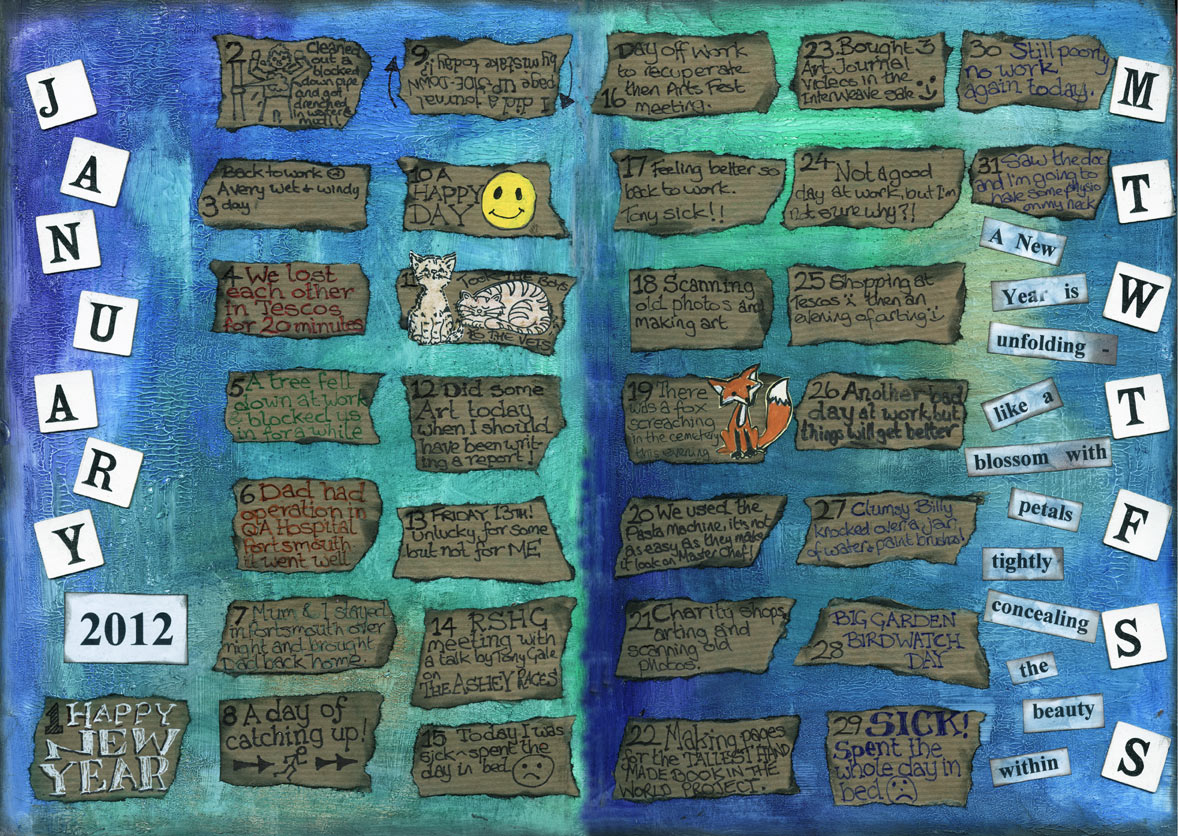 JANUARY
2012
1 HAPPY
NEW
YEAR
2 Cleaned
out a
blocked
down pipe
and got
drenched
in water &
mud!!
Back to work
A very wet + windy
3 day.
4 We lost
each other
in Tescos
for 20 minutes
5 A tree fell
down at work
& blocked us
in for a while
6 Dad had
operation in
QA Hospital
Portsmouth
it went well
7 Mum & I stayed
in Portsmouth over
night and brought
Dad back home
8 A day of
catching up!
9
I did a journal
page up-side-down
by mistake today!!
10 A
HAPPY
DAY
THE BOYS
TO THE VETS
12 Did some
Art today
when I should
have been writ-
ing a report!
13 FRIDAY 13TH!
Unlucky for some
but not for ME
14 RSHG
meeting with
a talk by Tony Gale
on
THE ASHEY RACES
15 Today I was
sick - spent the
day in bed
Day off work
to recuperate
then Arts Fest
16 meeting.
17 Feeling better so
back to work.
Tony sick!!
18 Scanning
old photos and
making art
19 There
was a fox
screaching
in the cemetery
this evening
20 We used the
Pasta machine, it's not
as easy as they make
it look on Master Chef!
21 Charity shops
arting and
scanning old
photos.
22 Making pages
for the TALLEST HAND
MADE BOOK IN THE
WORLD PROJECT.
23 Bought 3
Art Journal
Videos in the
Interweave sale
24 Not a good
day at work, but I'm
not sure why?!
25 Shopping at
Tescos then an
evening of arting
26 Another bad
day at work, but
things will get better
27 Clumsy Billy
knocked over a jar
of water & paint brushes!
BIG GARDEN
BIRDWATCH
28 DAY
29 SICK!
Spent the
whole day in
bed
30 Still poorly
no work
again today.
31 Saw the doc
and I'm going to
have some physio
on my neck
A New
Year is
unfolding -
like a
blossom with
petals
tightly
concealing
the
beauty
within
M
T
W
T
F
S
S